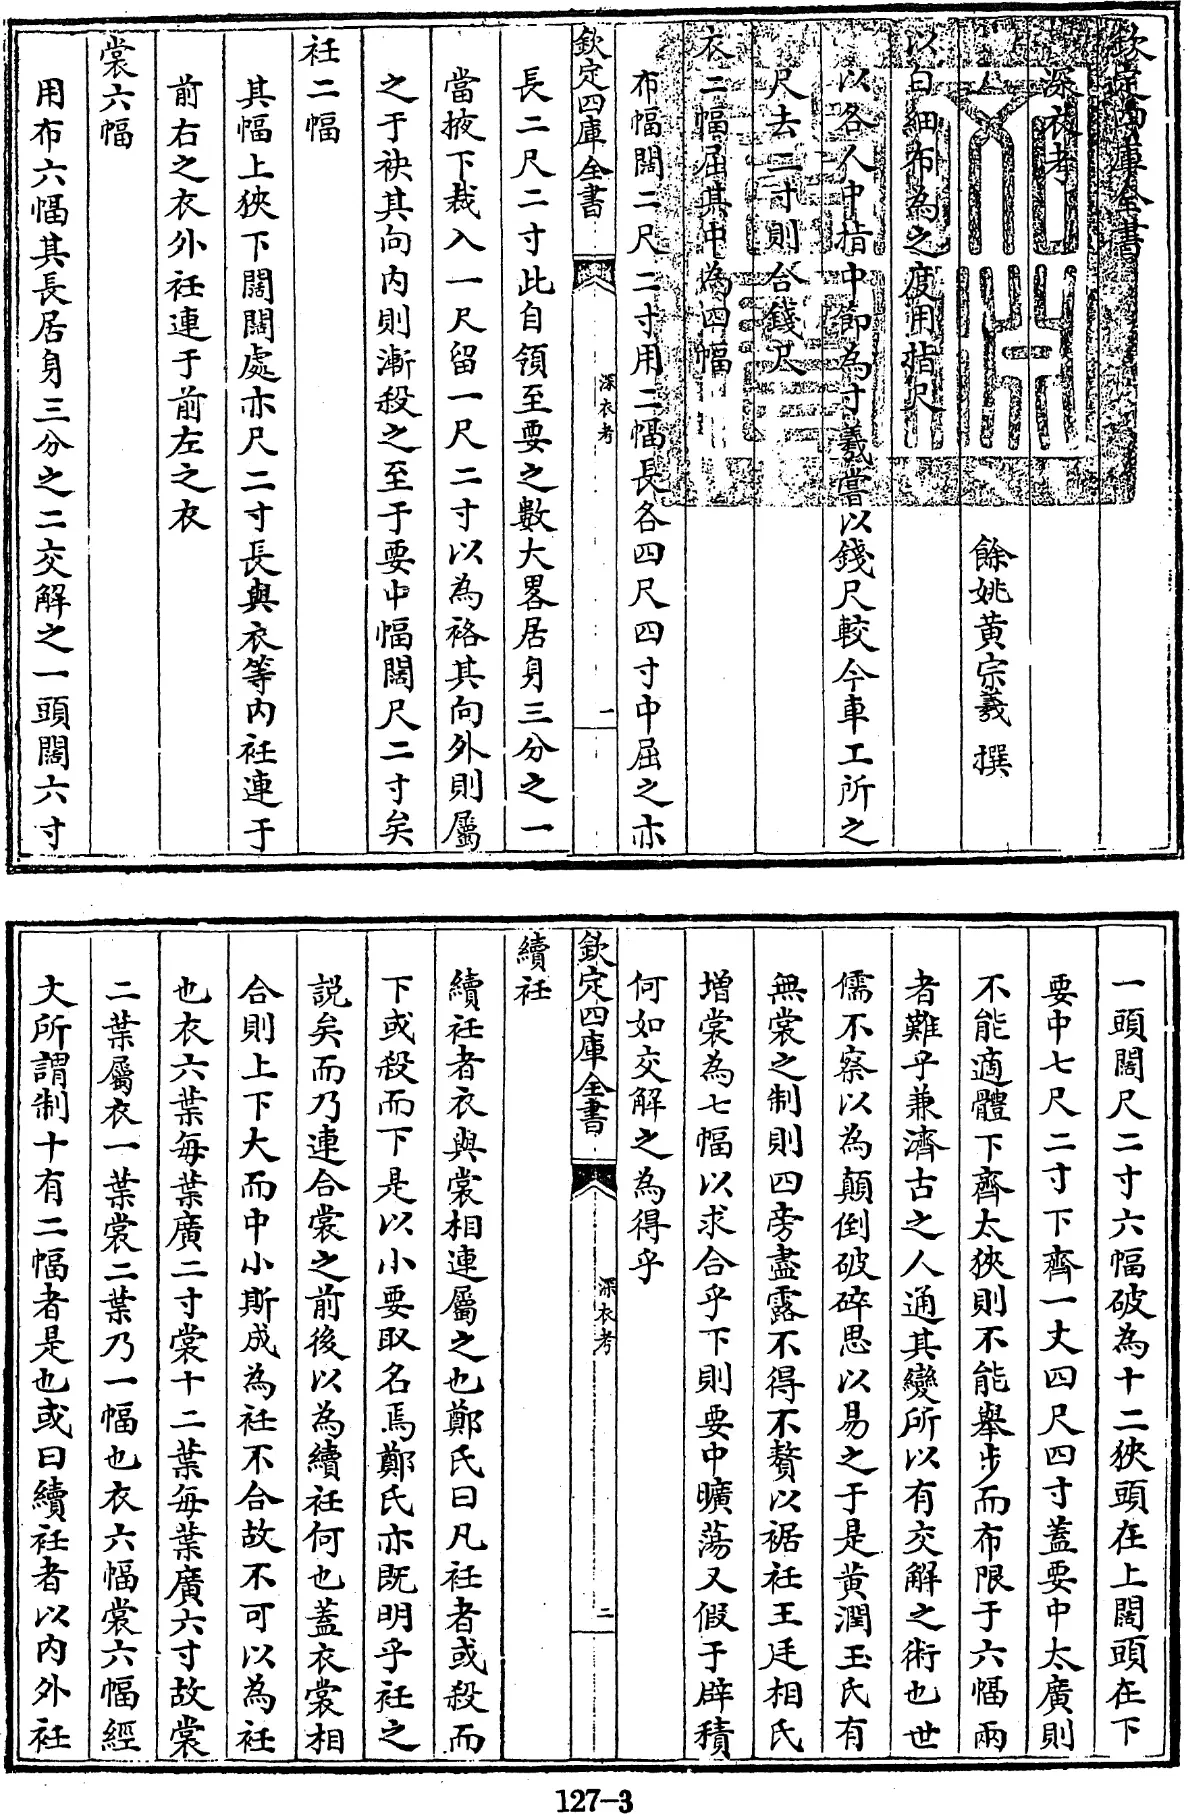 欽定四庫全書
深衣考
餘姚黄宗羲撰
以白細布為之度用指尺
以各人中指中節為寸羲嘗以錢尺較今車工所之
尺去二寸則合錢尺
衣二幅屈其中為四幅
布幅闊二尺二寸用二幅長各四尺四寸中屈之亦
欽定四庫全書
深衣考
一
長二尺二寸此自領至要之數大畧居身三分之一
當掖下裁入一尺留一尺二寸以為袼其向外則屬
之于袂其向内則漸殺之至于要中幅闊尺二寸矣
衽二幅
其幅上狹下闊闊處亦尺二寸長與衣等内衽連于
前右之衣外衽連于前左之衣
裳六幅
用布六幅其長居身三分之二交解之一頭闊六寸
一頭闊尺二寸六幅破為十二狹頭在上闊頭在下
要中七尺二寸下齊一丈四尺四寸蓋要中太廣則
不能適體下齊太狹則不能舉步而布限于六幅兩
者難乎兼濟古之人通其變所以有交解之術也世
儒不察以為顛倒破碎思以易之于是黄潤玉氏有
無裳之制則四旁盡露不得不贅以裾衽王廷相氏
增裳為七幅以求合乎下則要中曠蕩又假于辟積
何如交解之為得乎
欽定四庫全書
深衣考
二
續衽
續衽者衣與裳相連屬之也鄭氏曰凡衽者或殺而
下或殺而下是以小要取名焉鄭氏亦既明乎衽之
説矣而乃連合裳之前後以為續衽何也蓋衣裳相
合則上下大而中小斯成為衽不合故不可以為衽
也衣六葉每葉廣二寸裳十二葉每葉廣六寸故裳
二葉屬衣一葉裳二葉乃一幅也衣六幅裳六幅經
文所謂制十有二幅者是也或曰續衽者以内外衽
127-3